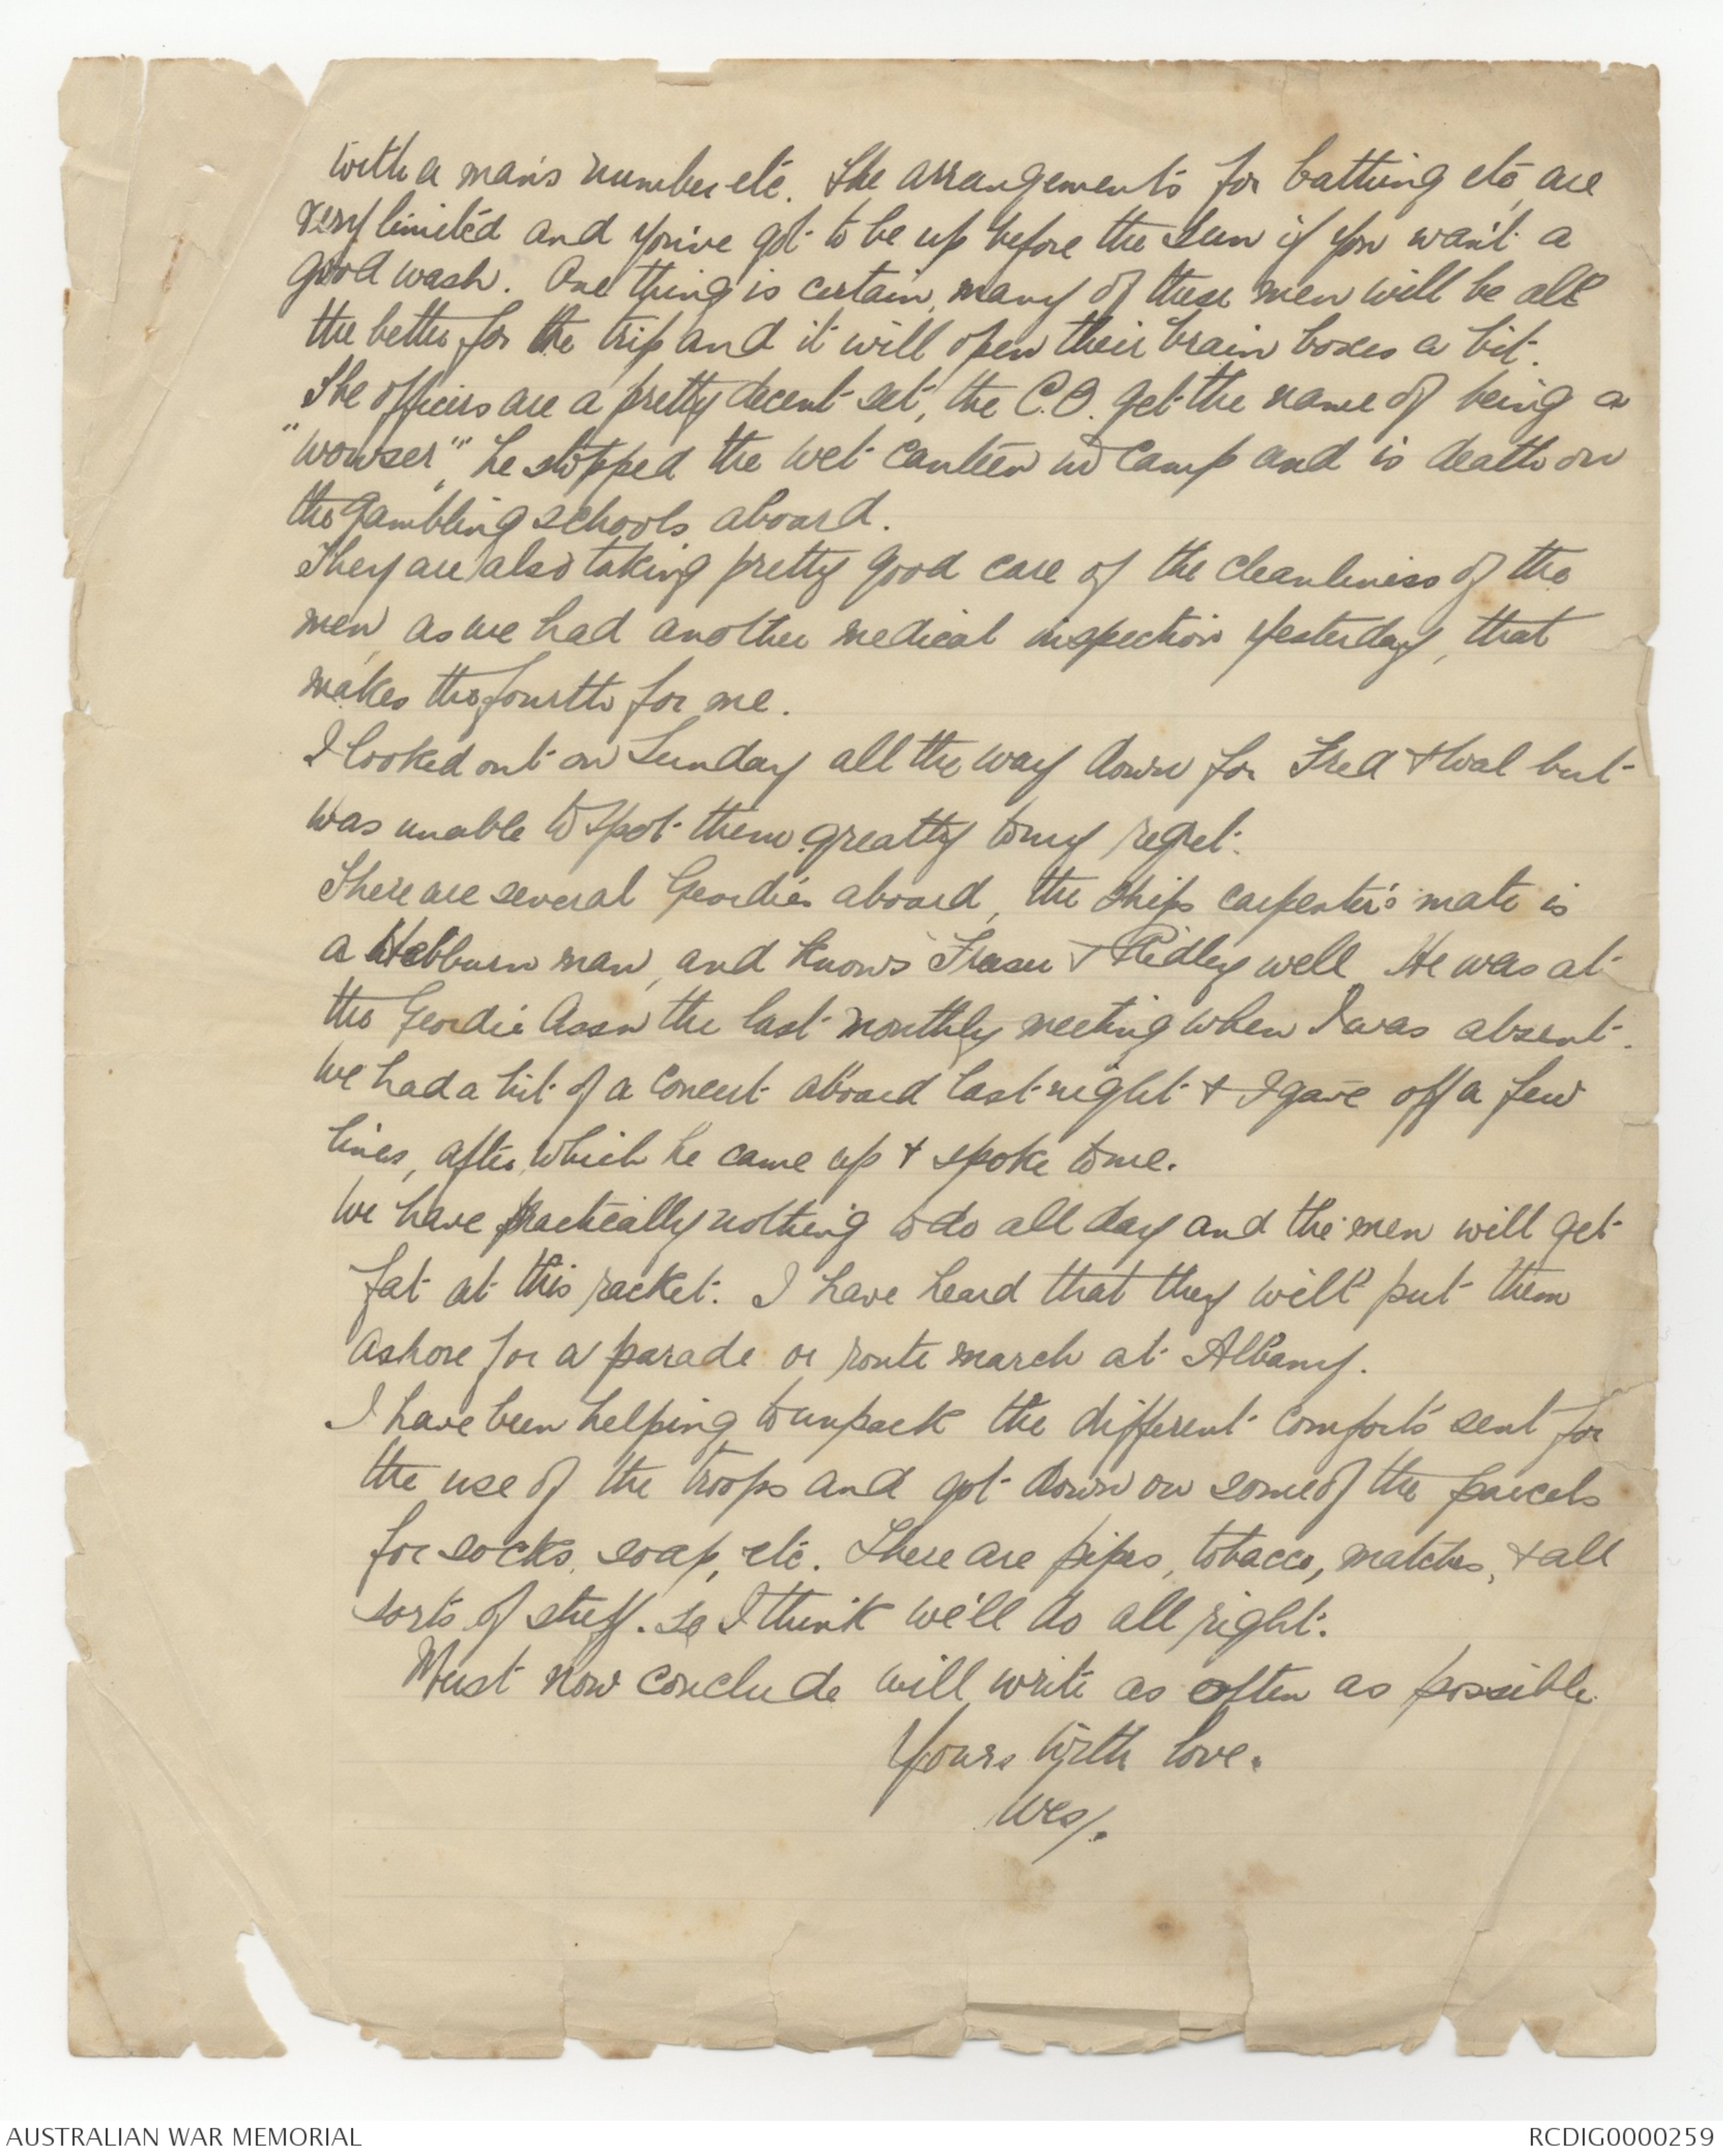 with a man's number etc. The arrangements for bathing etc, are
very limited and you've got to be up before the sun if you want a
good wash. One thing is certain, many of these men will be all
the better for the trip and it will open their brain boxes a bit.
The officers are a pretty decent set, the C.O. get the name of being a
"wowser," he stopped the wet canteen in camp and is death on
the gambling schools aboard.
They are also taking pretty good care of the cleanliness of the
men, as we had another medical inspection yesterday, that
makes the fourth for me.
I looked out on Sunday all the way down for Fred & Wal but
was unable to spot them greatly to my regret.
There are several Geordies aboard, the ships carpenter's mate is
a Hebburn man, and knows Fraser & Ridley well. He was at
the Geordie Assn the last monthly meeting when I was absent.
We had a bit of a concert aboard last night & I gave off a few
lines, after which he came up & spoke to me.
We have practically nothing to do all day and the men will get
fat at this racket. I have heard that they will put them
ashore for a parade or route march at Albany.
I have been helping to unpack the different comforts sent for
the use of the troops and got down on some of the parcels
for socks, soap, etc. There are pipes, tobacco, matches, & all
sorts of stuff. so I think we'll do all right.
Must now conclude will write as often as possible
Yours with love.
Wes/.
AUSTRALIAN WAR MEMORIAL
RCDIG0000259